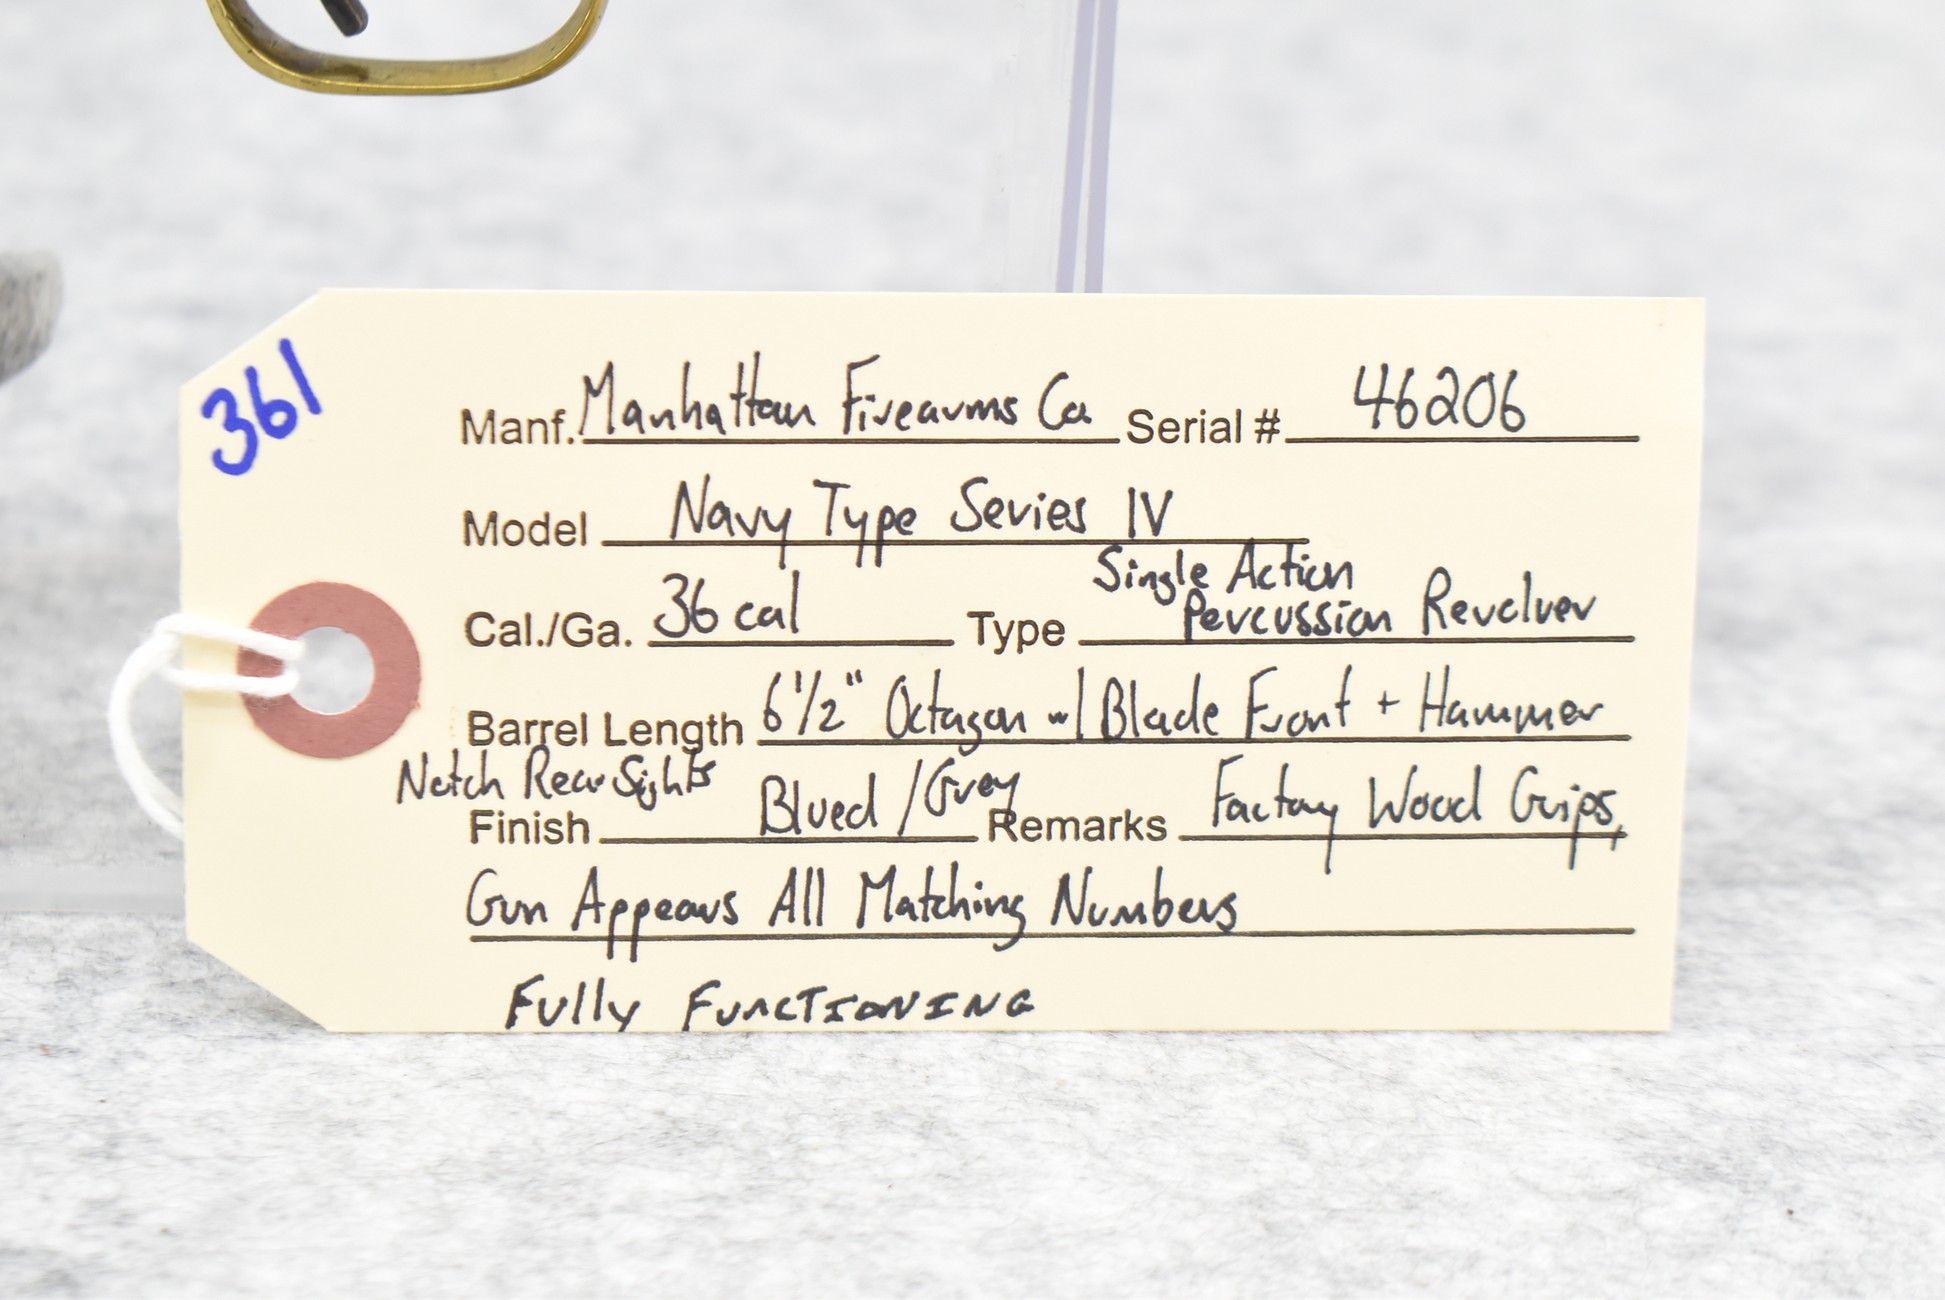 361
Manf. Manhattan Firearms Co Serial # 46206
Model Navy Type Series IV
Cal./Ga. 36 cal Type Single Action
Percussion Revolver
Barrel Length 6 1/2" Octagon w/ Blade Front + Hammer
Notch Rear Sights
Finish Blued / Grey Remarks Factory Wood Grips,
Gun Appears All Matching Numbers
Fully Functioning